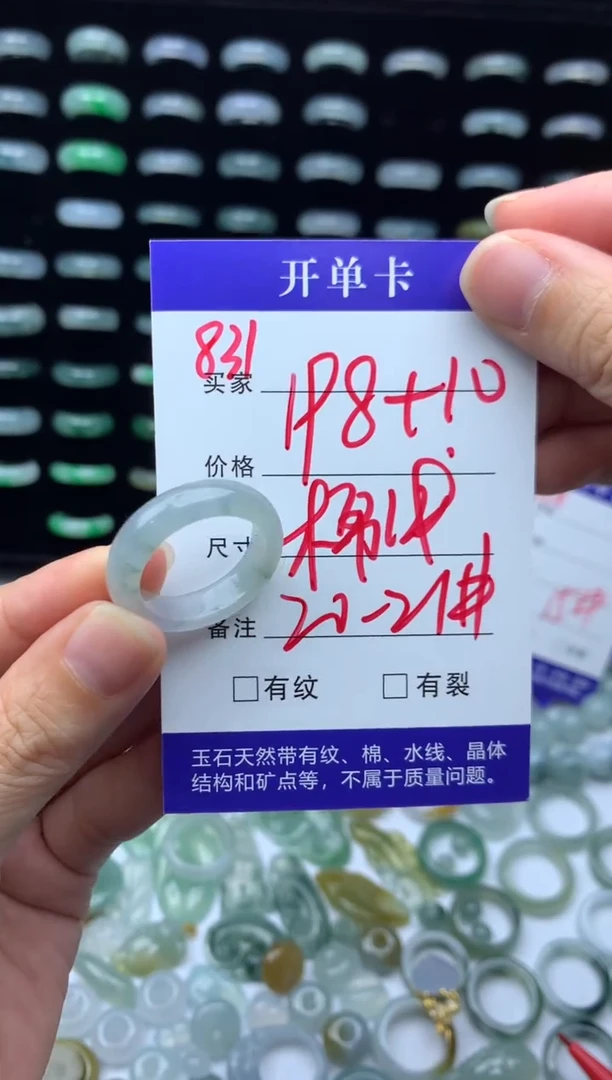 开单卡
831
买家 198+10
价格
尺寸 棉
备注 20-21#
□有纹 □有裂
玉石天然带有纹、棉、水线、晶体
结构和矿点等，不属于质量问题。